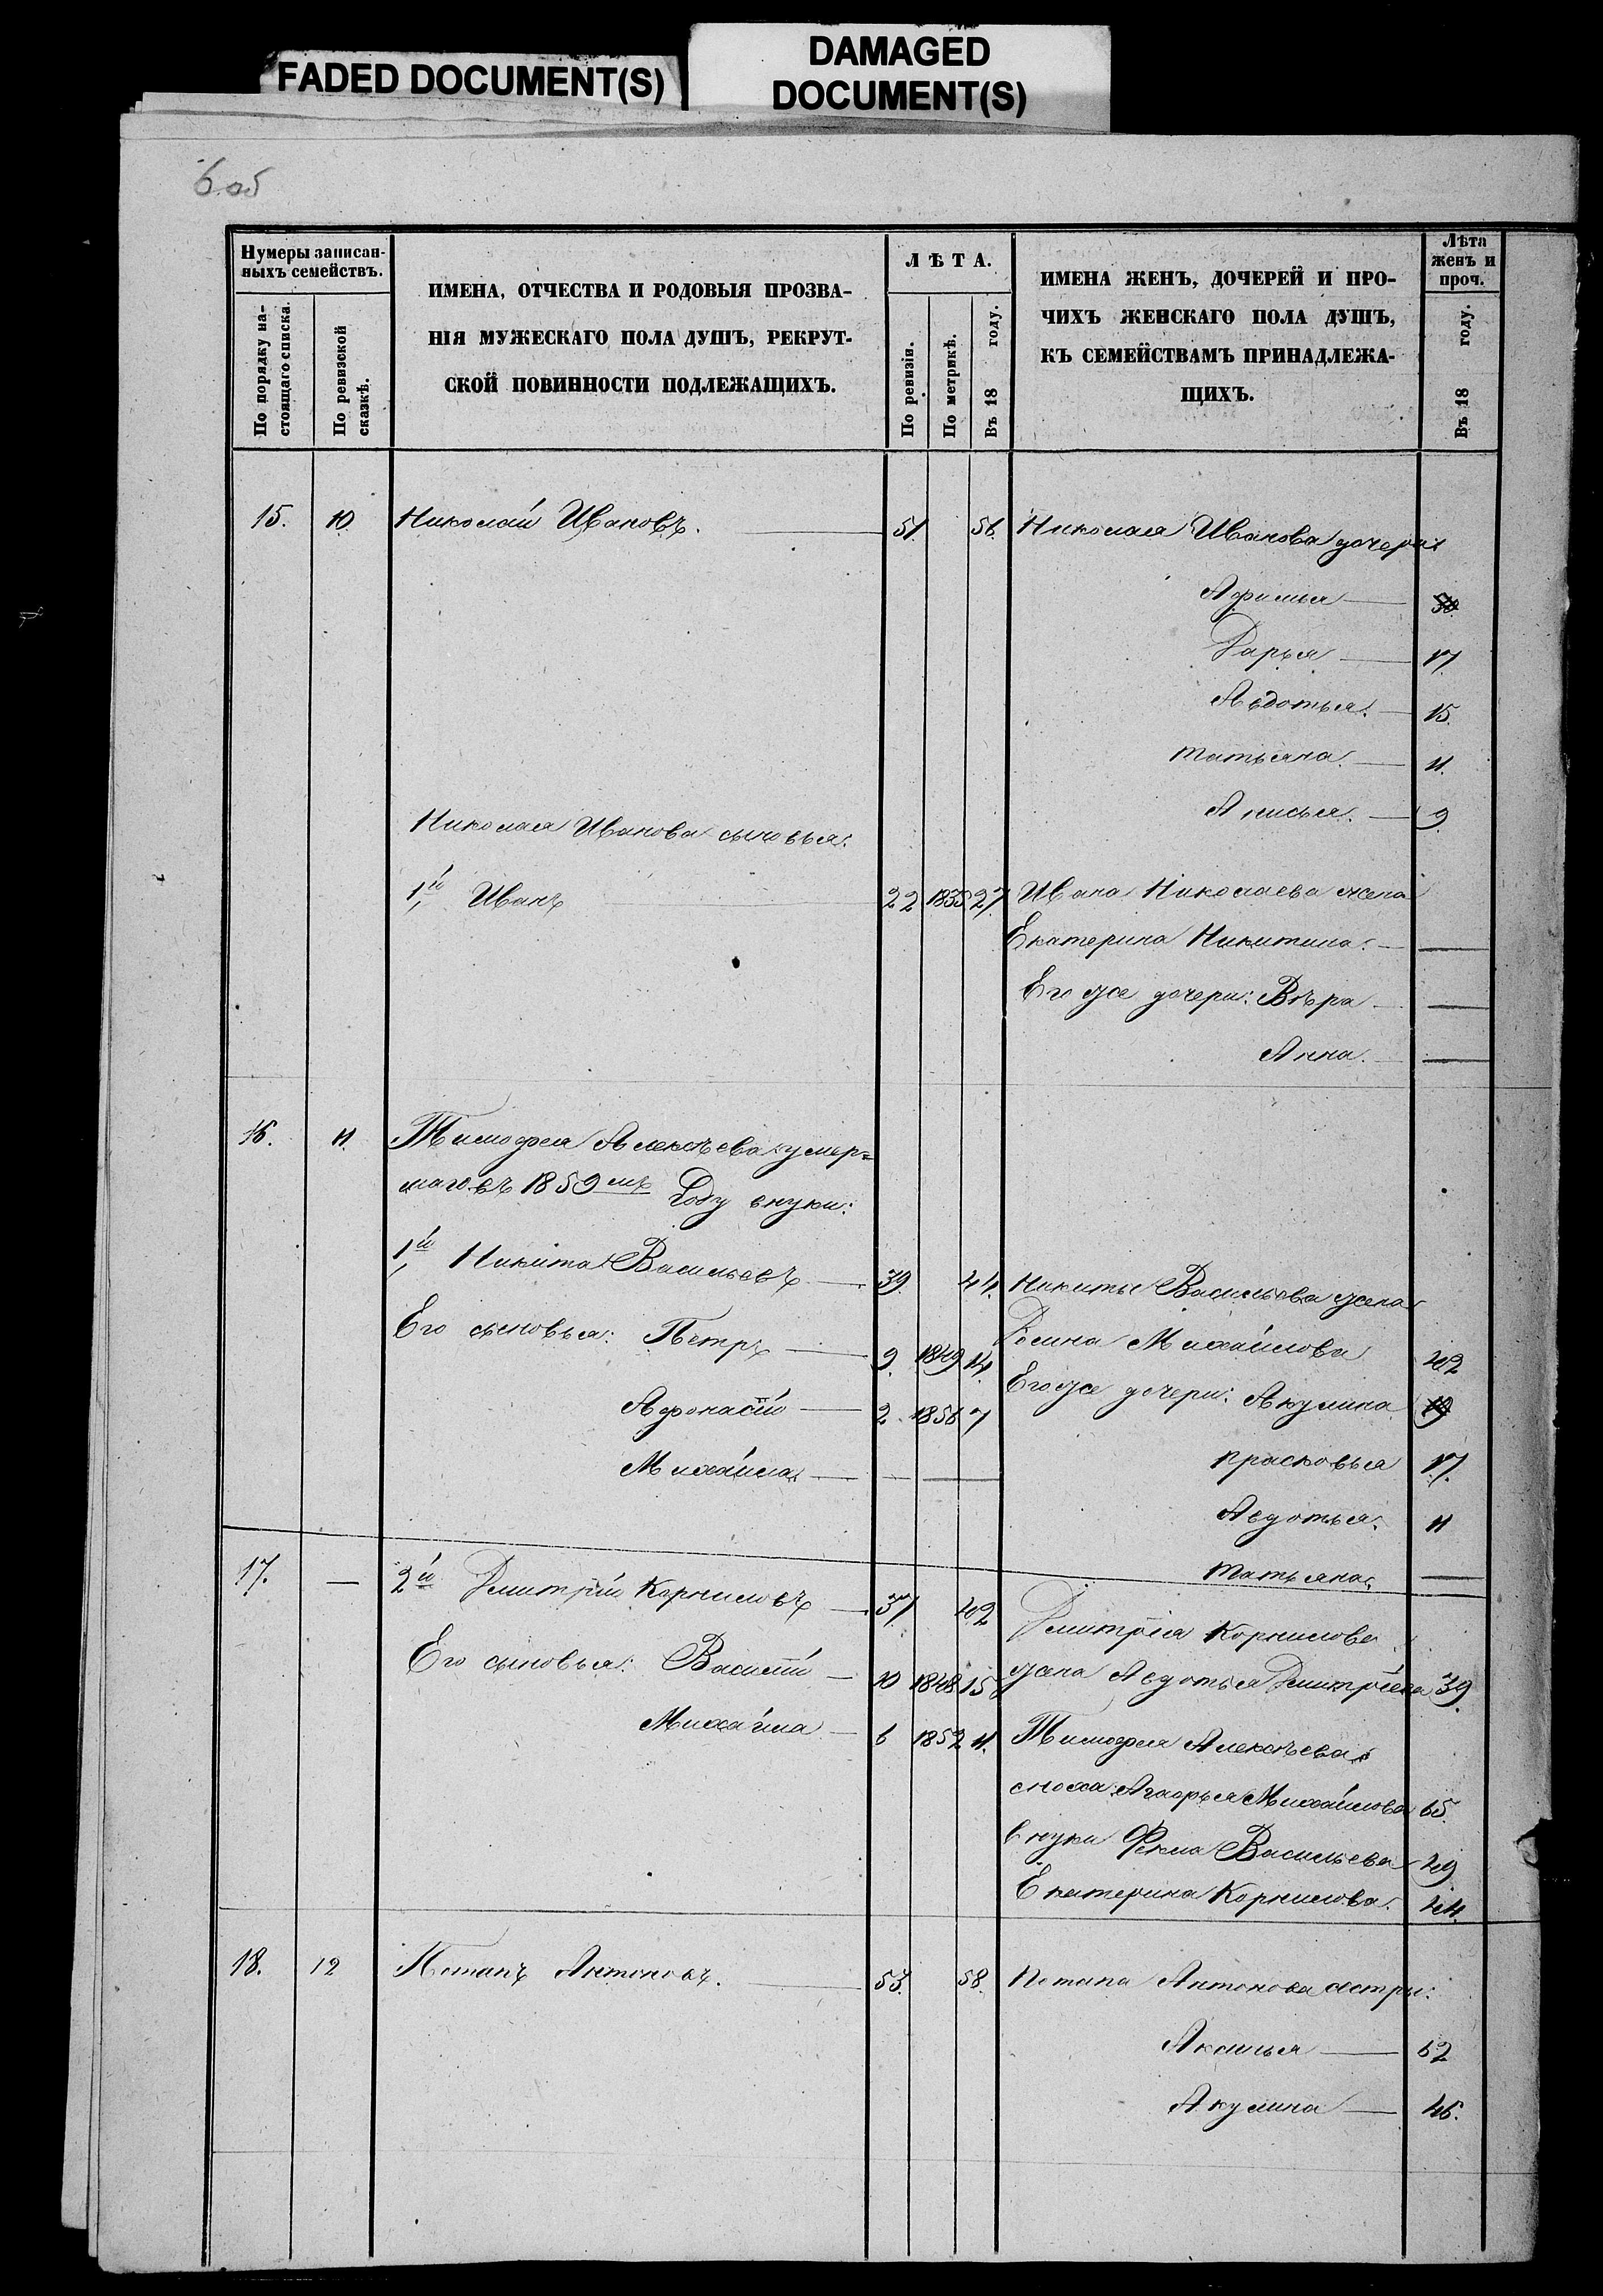 FADED DOCUMENT(S)
DAMAGED
DOCUMENT(S)
6 об
Нумеры записан-
ныхъ семействъ.
По порядку на-
стоящаго списка.
По ревизской
сказкѣ.
ИМЕНА, ОТЧЕСТВА И РОДОВЫЯ ПРОЗВА-
НІЯ МУЖЕСКАГО ПОЛА ДУШЪ, РЕКРУТ-
СКОЙ ПОВИННОСТИ ПОДЛЕЖАЩИХЪ.
ЛѢТА.
По ревизіи.
По метрикѣ.
Въ 18 году.
ИМЕНА ЖЕНЪ, ДОЧЕРЕЙ И ПРО-
ЧИХЪ ЖЕНСКАГО ПОЛА ДУШЪ,
КЪ СЕМЕЙСТВАМЪ ПРИНАДЛЕЖА-
ЩИХЪ.
Лѣта
женъ и
проч.
Въ 18 году.
15. 10. Николай Ивановъ. 51. 56. Николая Иванова дочери:
Афимья
Дарья 17.
Авдотья. 15.
Татьяна. 11.
Анисья. 9.
Николая Иванова сыновья:
1й Иванъ 22 1835 27. Ивана Николаева жена
Екатерина Никитина.
Его же дочери: Вѣра
Анна.
16. 11. Тимофея Алексѣева умер=
шаго въ 1859мъ Году внуки:
1й Никита Васильевъ 39. 44. Никиты Васильева жена
Михайлова 42
Его сыновья: Петръ 9. 1849 14.
Его же дочери: Акулина 19
Афонасій 2. 1856 7
Прасковья 17.
Михайла
Авдотья. 11
Татьяна.
17. — 2й Дмитрій Корниловъ 37. 42 Дмитрія Корнилова
Его сыновья: Василій 10 1848 15 жена Авдотья Дмитріева 39.
Михайла 6 1852 11. Тимофея Алексѣева
сноха Агафья Михайлова 65.
внуки Фекла Васильева 29
Екатерина Корнилова. 24.
18. 12 Потапъ Антоновъ. 53. 58. Потапа Антонова сестры:
Аксинья 62
Акулина 46.